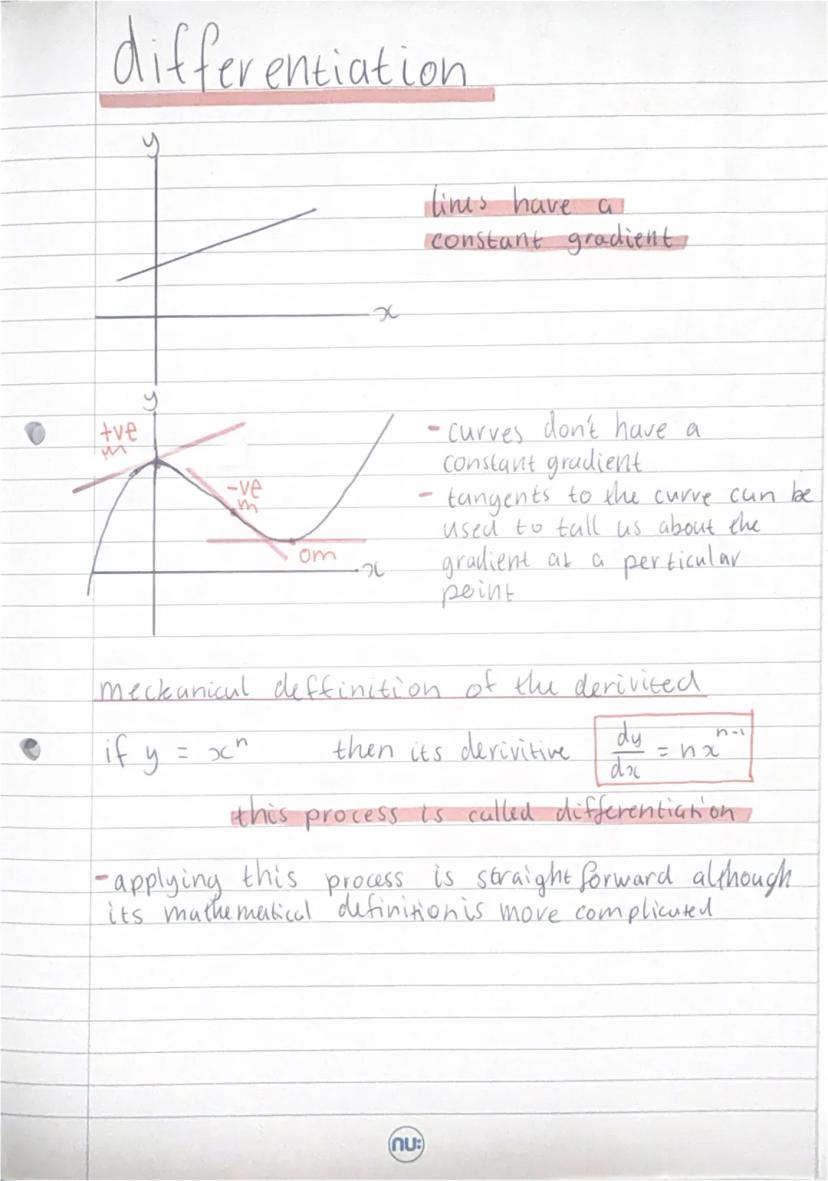 differentiation
y
lines have a
constant gradient
x
y
+ve
m
-ve
m
0m
x
- curves don't have a
constant gradient
- tangents to the curve can be
used to tall us about the
gradient at a perticular
point
meckanical deffinition of the derivited
if y = xⁿ then its derivitive dy/dx = nxⁿ⁻¹
this process is called differentiation
- applying this process is straight forward although
its mathematical definition is more complicated
nu: